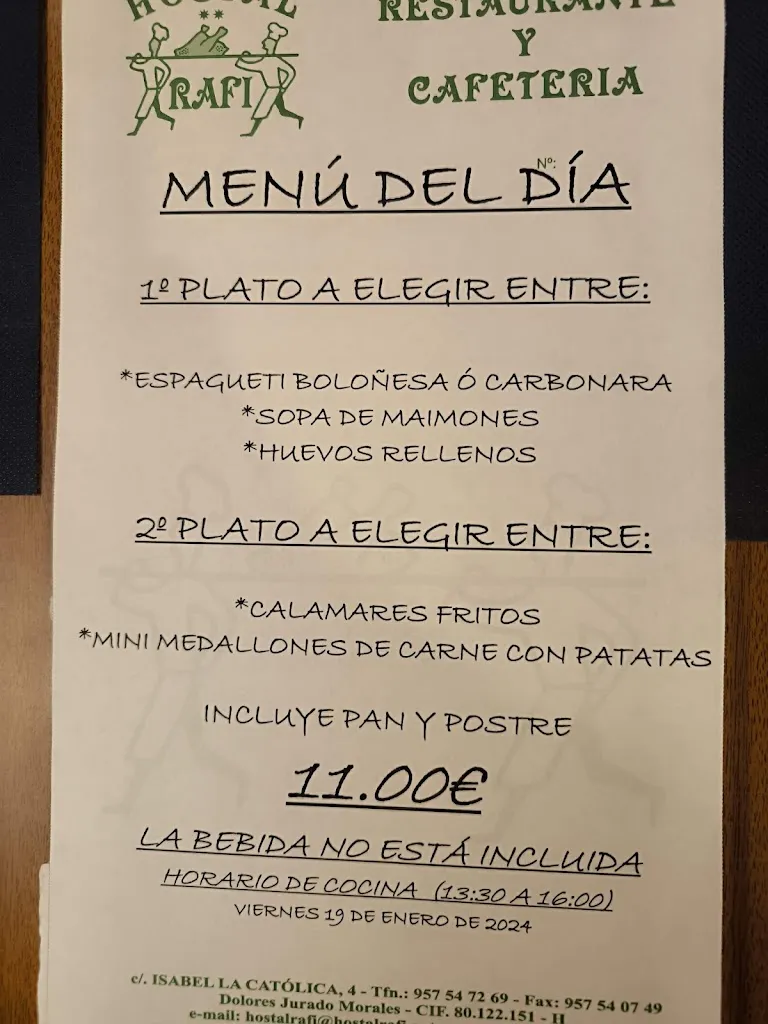 HOSTAL
RAFI
RESTAURANTE
Y
CAFETERIA
Nº:
MENÚ DEL DÍA
1º PLATO A ELEGIR ENTRE:
*ESPAGUETI BOLOÑESA Ó CARBONARA
*SOPA DE MAIMONES
*HUEVOS RELLENOS
2º PLATO A ELEGIR ENTRE:
*CALAMARES FRITOS
*MINI MEDALLONES DE CARNE CON PATATAS
INCLUYE PAN Y POSTRE
11.00€
LA BEBIDA NO ESTÁ INCLUIDA
HORARIO DE COCINA (13:30 A 16:00)
VIERNES 19 DE ENERO DE 2024
c/. ISABEL LA CATÓLICA, 4 - Tfn.: 957 54 72 69 - Fax: 957 54 07 49
Dolores Jurado Morales - CIF. 80.122.151 - H
e-mail: